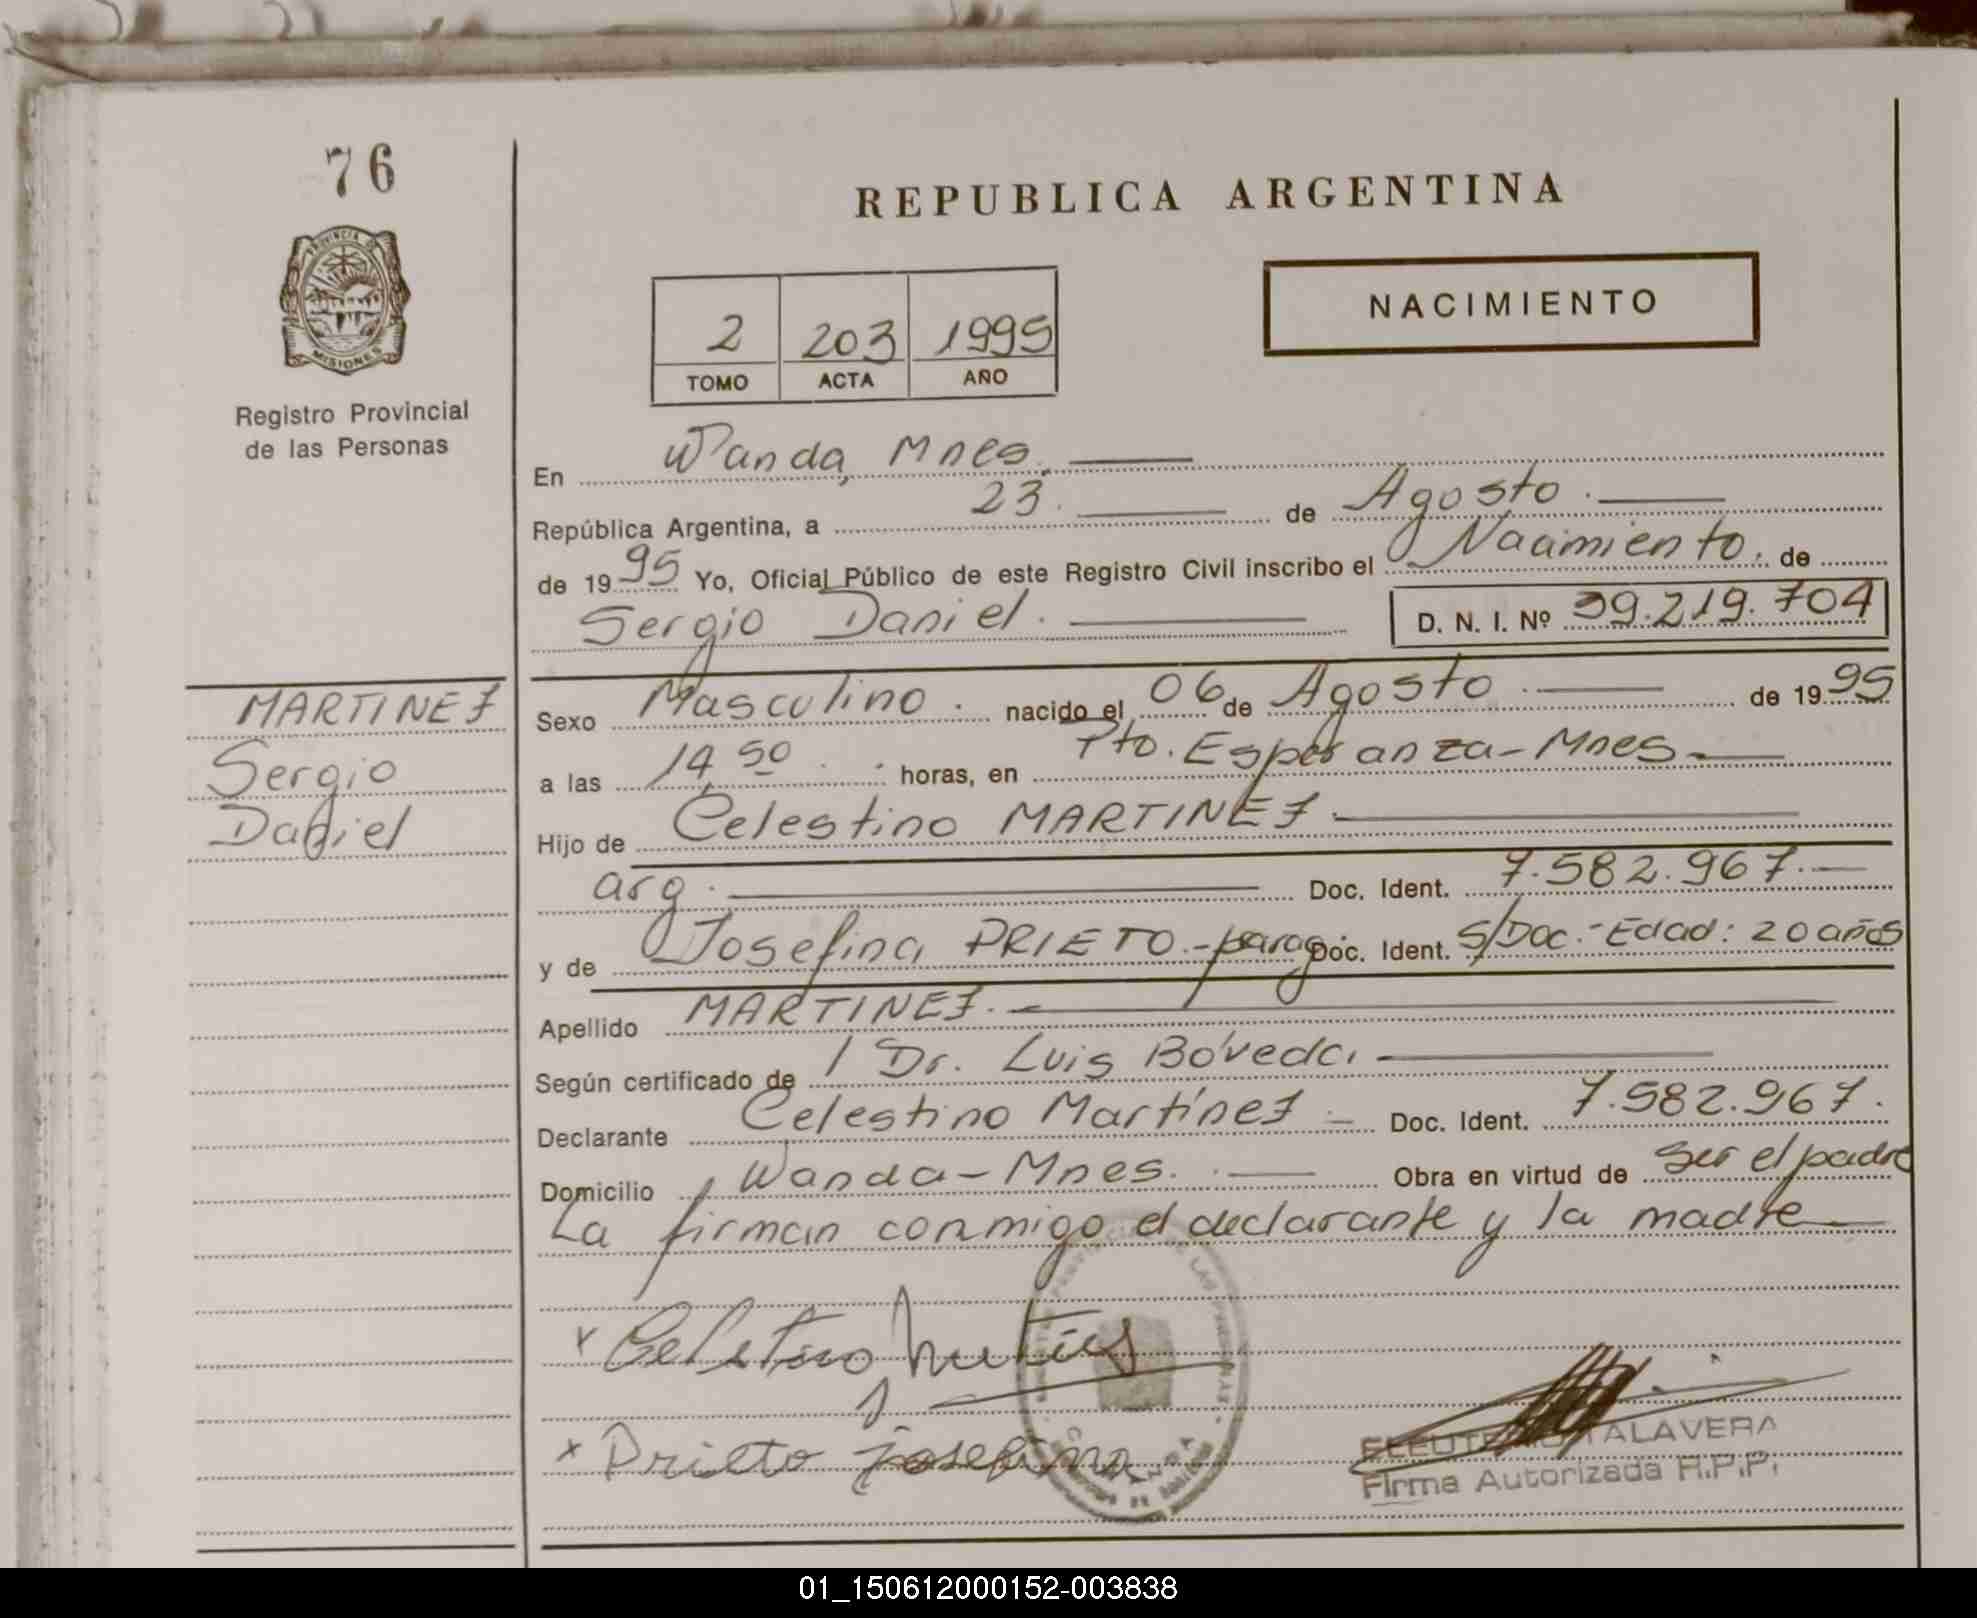 76
PROVINCIA DE
MISIONES
Registro Provincial
de las Personas
REPUBLICA ARGENTINA
NACIMIENTO
2 203 1995
TOMO ACTA AÑO
En Wanda, Mnes.
República Argentina, a 23. de Agosto.
de 1995 Yo, Oficial Público de este Registro Civil inscribo el Nacimiento. de
Sergio Daniel. D. N. I. Nº 39.219.704
MARTINEZ
Sergio
Daniel
Sexo Masculino. nacido el 06 de Agosto. de 1995
a las 14,50 horas, en Pto. Esperanza-Mnes-
Hijo de Celestino MARTINEZ
arg. Doc. Ident. 7.582.967.-
y de Josefina PRIETO.-parag. Doc. Ident. S/Doc.-Edad: 20 años
Apellido MARTINEZ.
Según certificado de / Dr. Luis Bóveda.
Declarante Celestino Martínez.- Doc. Ident. 7.582.967.
Domicilio Wanda-Mnes. Obra en virtud de ser el padre
La firman conmigo el declarante y la madre
x Celestino
x Prieto Josefina
LAS PERSONAS
WANDA
TALAVERA
Firma Autorizada R.P.P.
01_150612000152-003838